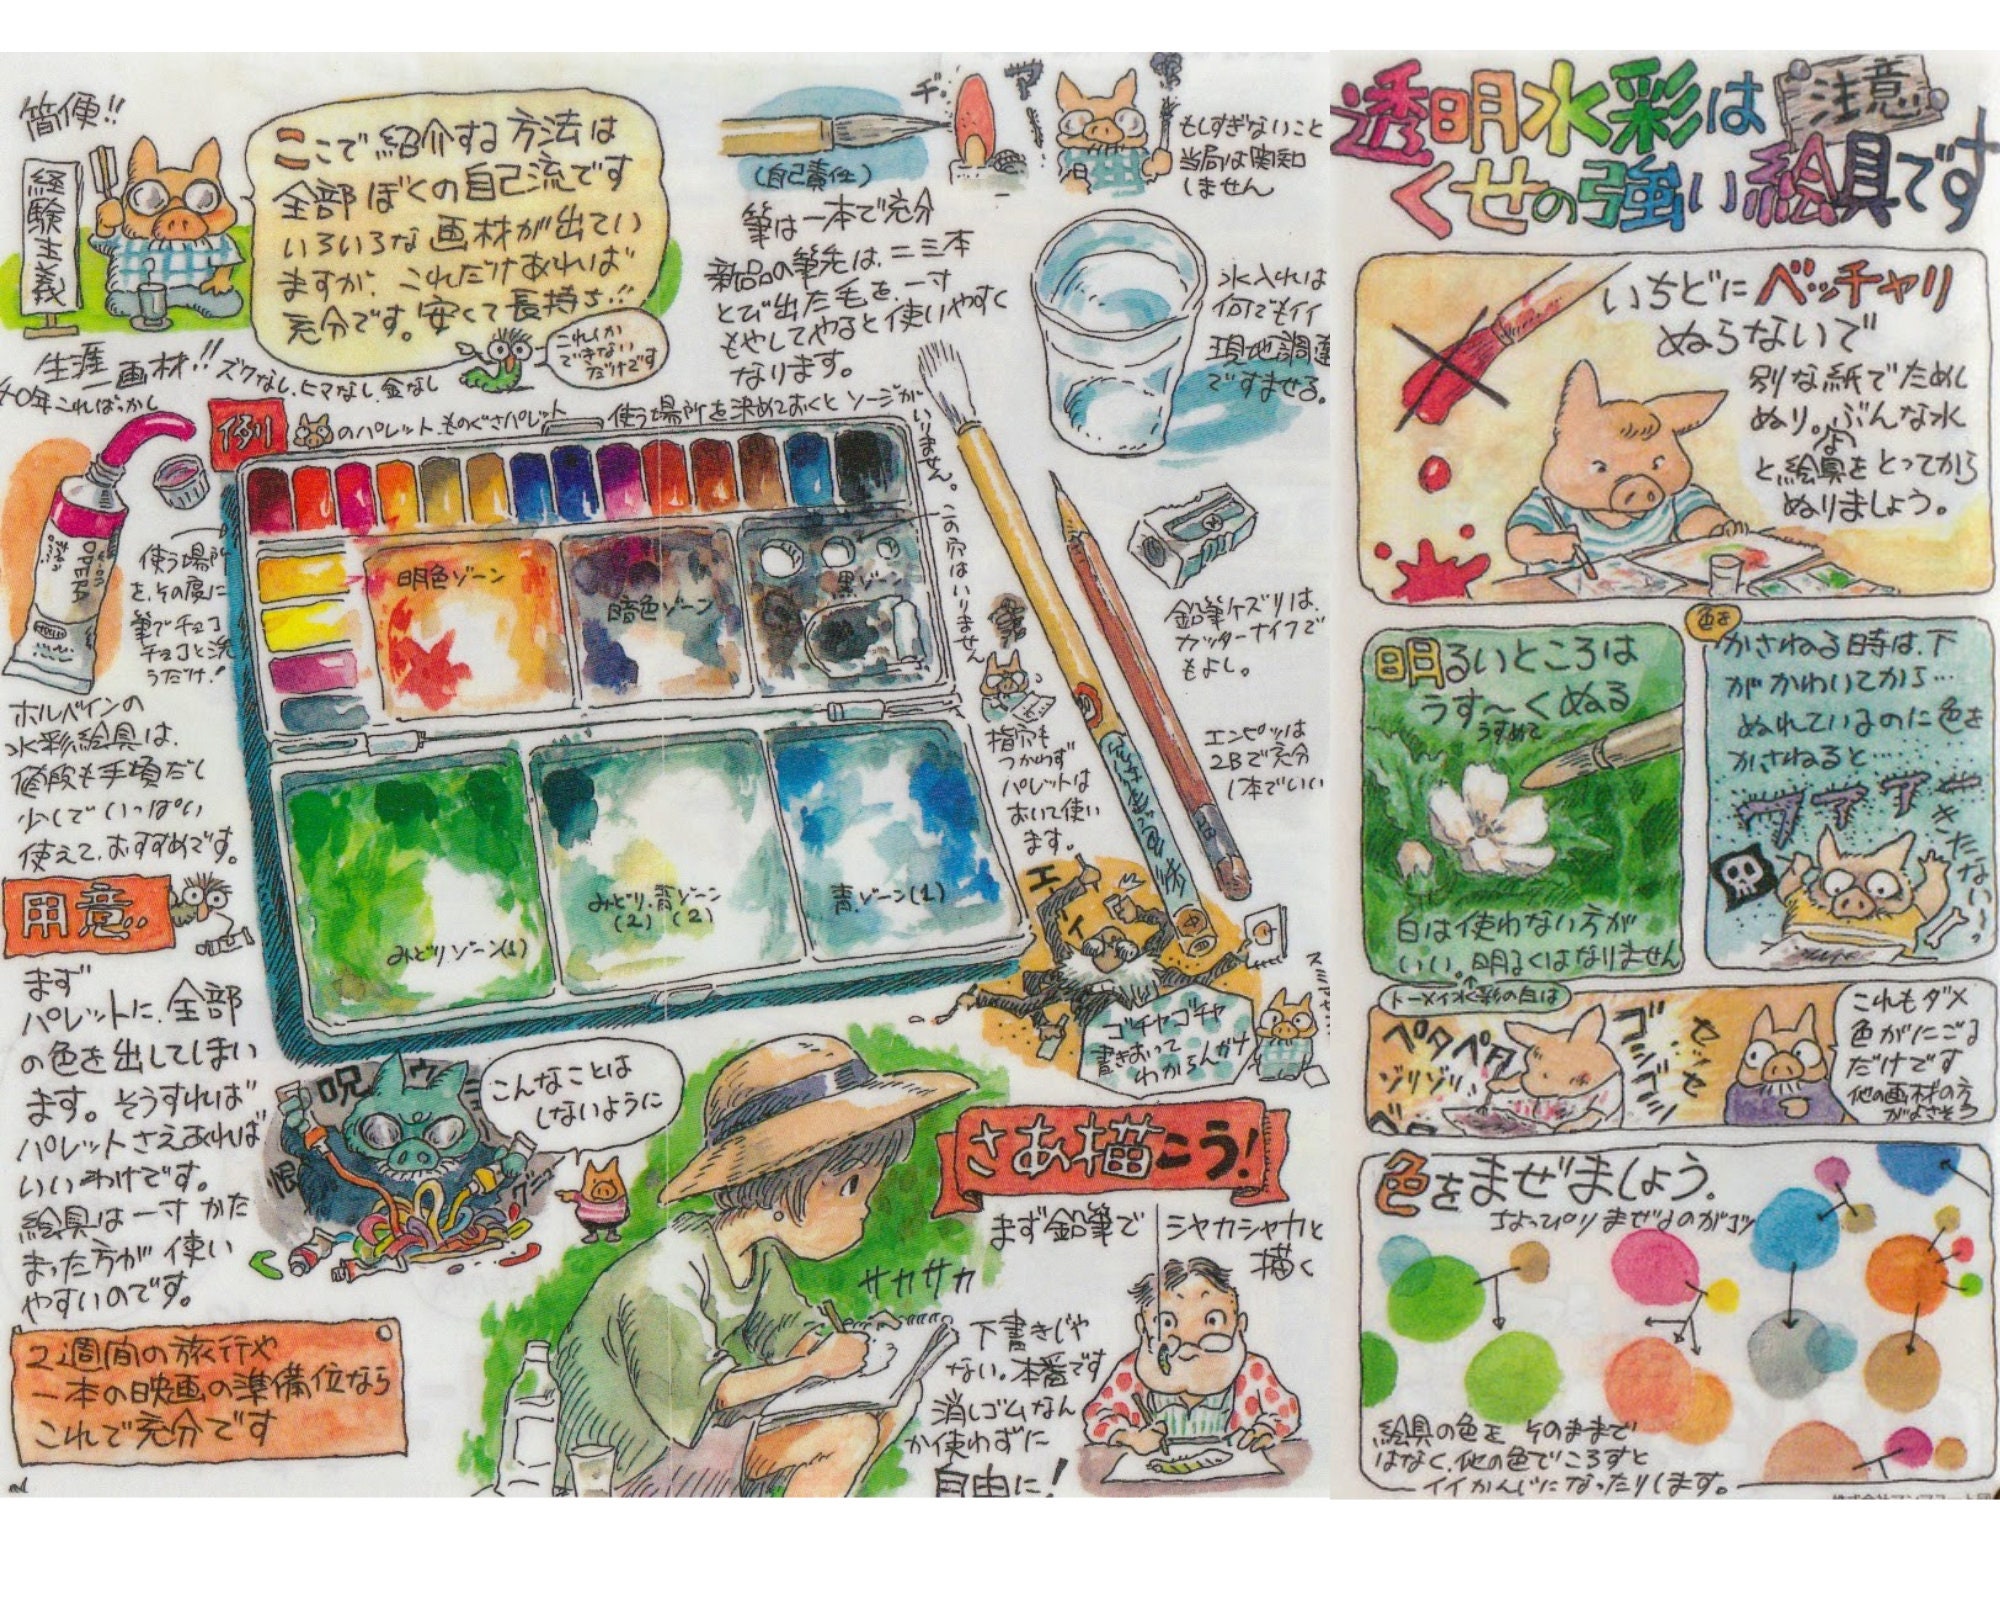 簡便!!
経験主義
ここで紹介する方法は
全部ぼくの自己流です
いろいろな画材が出てい
ますが、これだけあれば
充分です。安くて長持ち!!
これしか
できない
だけです
生涯一画材!!
ズクなし、ヒマなし、金なし
40年こればっかし
ヂ
(自己責任)
もしすぎないこと
当局は関知
しません
筆は一本で充分
新品の筆先は、二三本
とび出た毛を、一寸
もやしてやると使いやすく
なります。
水入れは
何でもイイ
現地調達
ですませる。
例
のパレット、ものぐさパレット
使う場所を決めておくとソージがいりません。
この穴はいりません
使う場所
を、その度に
筆でチョコ
チョコと洗
うだけ!
OPERA
ホルベインの
水彩絵具は、
値段も手頃だし
少しでいっぱい
使えて、おすすめです。
明色ゾーン
暗色ゾーン
黒ゾーン
みどりゾーン(1)
みどり、青ゾーン
(2) (2)
青ゾーン(1)
鉛筆ケズリは、
カッターナイフで
もよし。
エンピツは
2Bで充分
1本でいい
2B
指穴も
つかわず
パレットは
おいて使い
ます。
用意..
まず
パレットに、全部
の色を出してしまい
ます。そうすれば
パレットさえあれば
いいわけです。
絵具は一寸かた
まった方が使い
やすいのです。
呪
恨
こんなことは
しないように
ゴチャゴチャ
書きおって
わからんがナ
2週間の旅行や
一本の映画の準備位なら
これで充分です
さあ描こう!
まず鉛筆で
シャカシャカと
描く
サカサカ
下書きじゃ
ない。本番です
消しゴムなん
か使わずに
自由に!
透明水彩は
注意
くせの強い絵具です
いちどにベッチャリ
ぬらないで
別な紙でためし
ぬり。じぶんな水
と絵具をとってから
ぬりましょう。
明るいところは
うす〜くぬる
うすめて
白は使わない方が
いい。明るくはなりません
トーメイ水彩の白は
色を
かさねる時は、下
がかわいてから…
ぬれているのに色を
かさねると……
ワアアアー
きたない〜っ
ペタペタ
ゾリゾリ
ゴシゴシ
セッセ
これもダメ
色がにごる
だけです
他の画材の方
がよさそう
色をまぜましょう。
ちょっぴりまぜるのがコツ
絵具の色を そのままで
はなく、他の色でころすと
イイかんじになったりします。